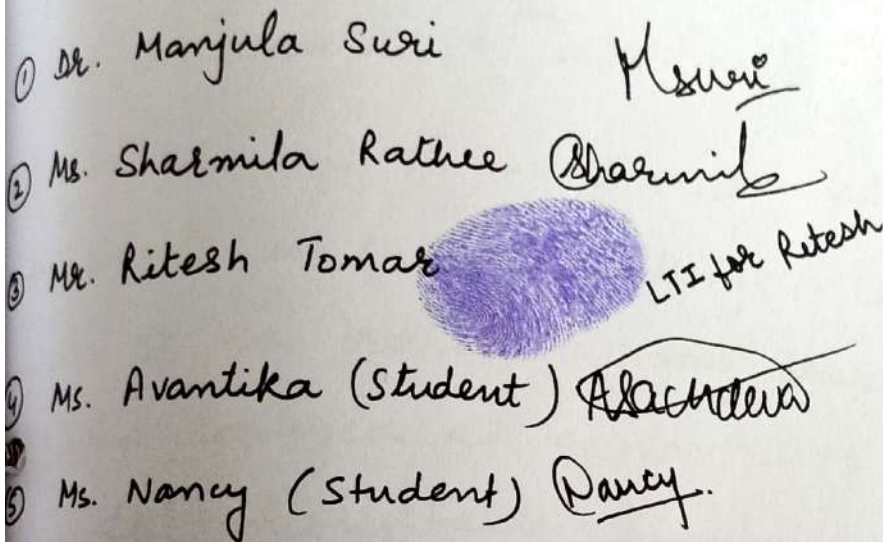 ① Dr. Manjula Suri Msuri
② Ms. Sharmila Rathee Sharmila
③ Mr. Ritesh Tomar LTI for Retesh
④ Ms. Avantika (Student) ASachdeva
⑤ Ms. Nancy (Student) Nancy.